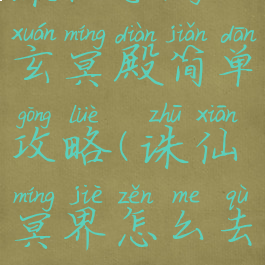 xuán míng diàn jiǎn dān
玄冥殿简单
gōng lüè zhū xiān
攻略(诛仙
míng jiè zěn me qù
冥界怎么去